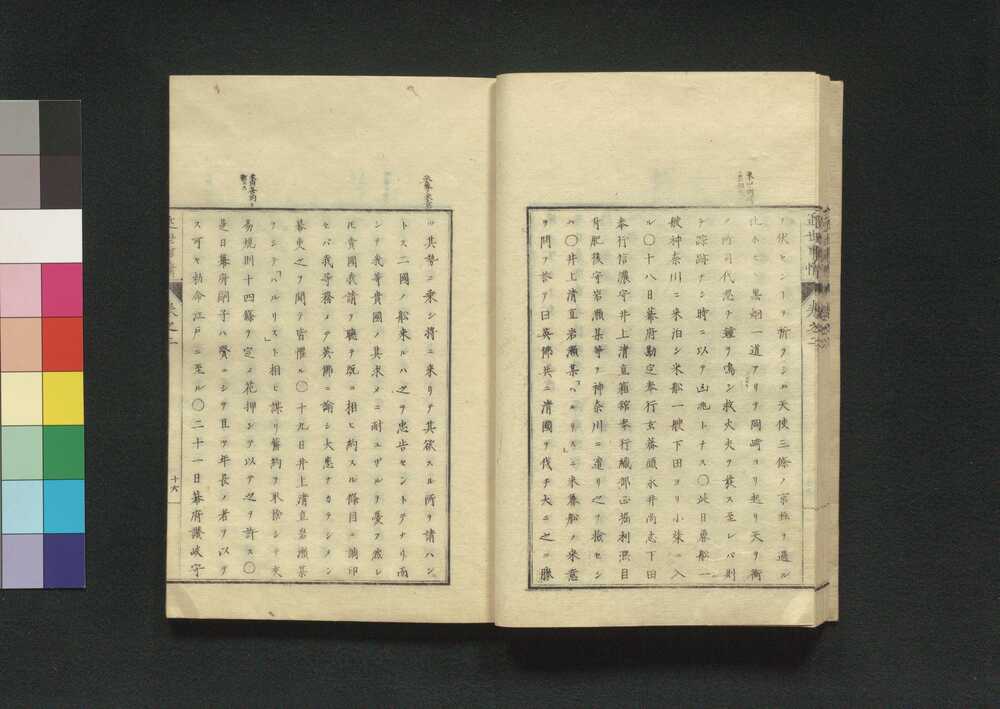 ノ伏セシーヲ祈ラシム天使三條ノ京極ヲ過ル
比小 黒烟一道アリテ岡町ヨリ起リ天ヲ衝
所司代急ニ鐘ヲ鳴シ救火夫ヲ發ス至レバ則
シ踪跡ナシ時ニ以テ凶兆トナス〇此日魯船一
艘神奈川ニ来泊シ米船一艘下田ヨリ小柴ニ入
ル〇十八日幕府勘定奉行玄蕃頭永井尚志下田
奉行信濃守井上清直箱舘奉行織部正堀利煕目
付肥後守岩瀬某等ヲ神奈川ニ遣リ之ヲ檢セシ
ハ〇井上清直岩瀬某「ハルリス」ニ米魯船ノ来意
ヲ問フ答テ曰英佛共ニ清國ヲ伐チ大ニ之ニ勝
其勢ニ乗シ将ニ来リテ其欲スル所ヲ請ハン
トス二國ノ船来ルハ之ヲ忠告セントテナリ而
シテ我等貴國ノ其求メニ耐エザルヲ憂フ庶シ
ヒ貴國我請ヲ聽キ既ニ相ヒ約スル條目ニ調印
セバ我等務メテ英佛ニ諭シ大患ナカラシメン
幕吏之ヲ聞テ皆懼ル〇十九日井上清直岩瀬某
ヲシテ「ハルリス」ト相ヒ謀リ舊約ヲ取捨シテ交
易規則十四條ヲ定メ花押シテ以テ之ヲ許ス〇
是日幕府嗣子ハ賢ニシテ且ツ年長ノ者ヲ以テ
ス可キ勅命江戸ニ至ル〇二十一日幕府讃岐守
近世事情
巻之二
十六